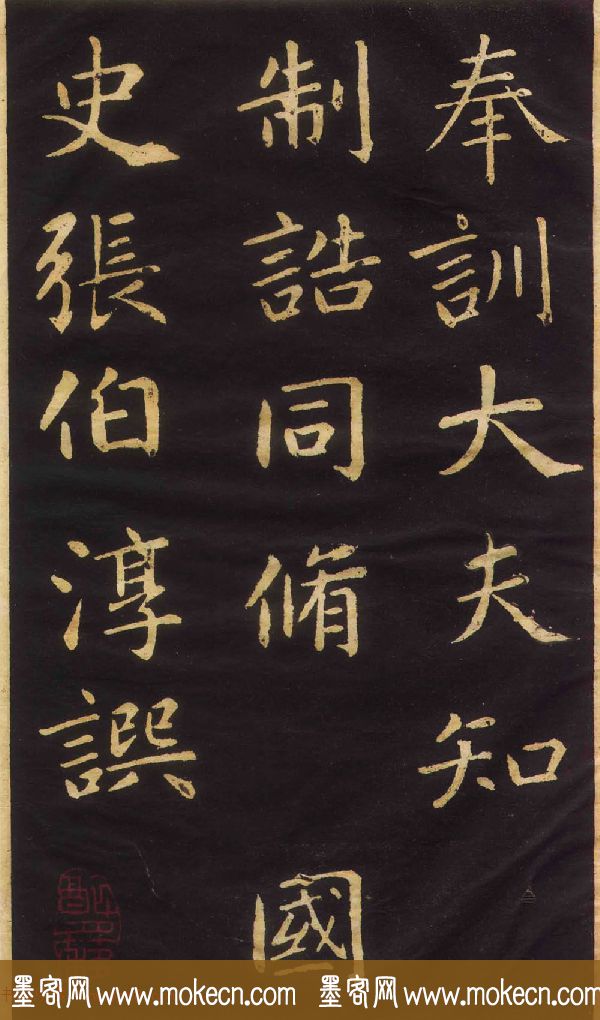 奉訓大夫知
制誥同脩 國
史張伯淳譔
墨客网 www.mokecn.com 墨客网 www.mokecn.com